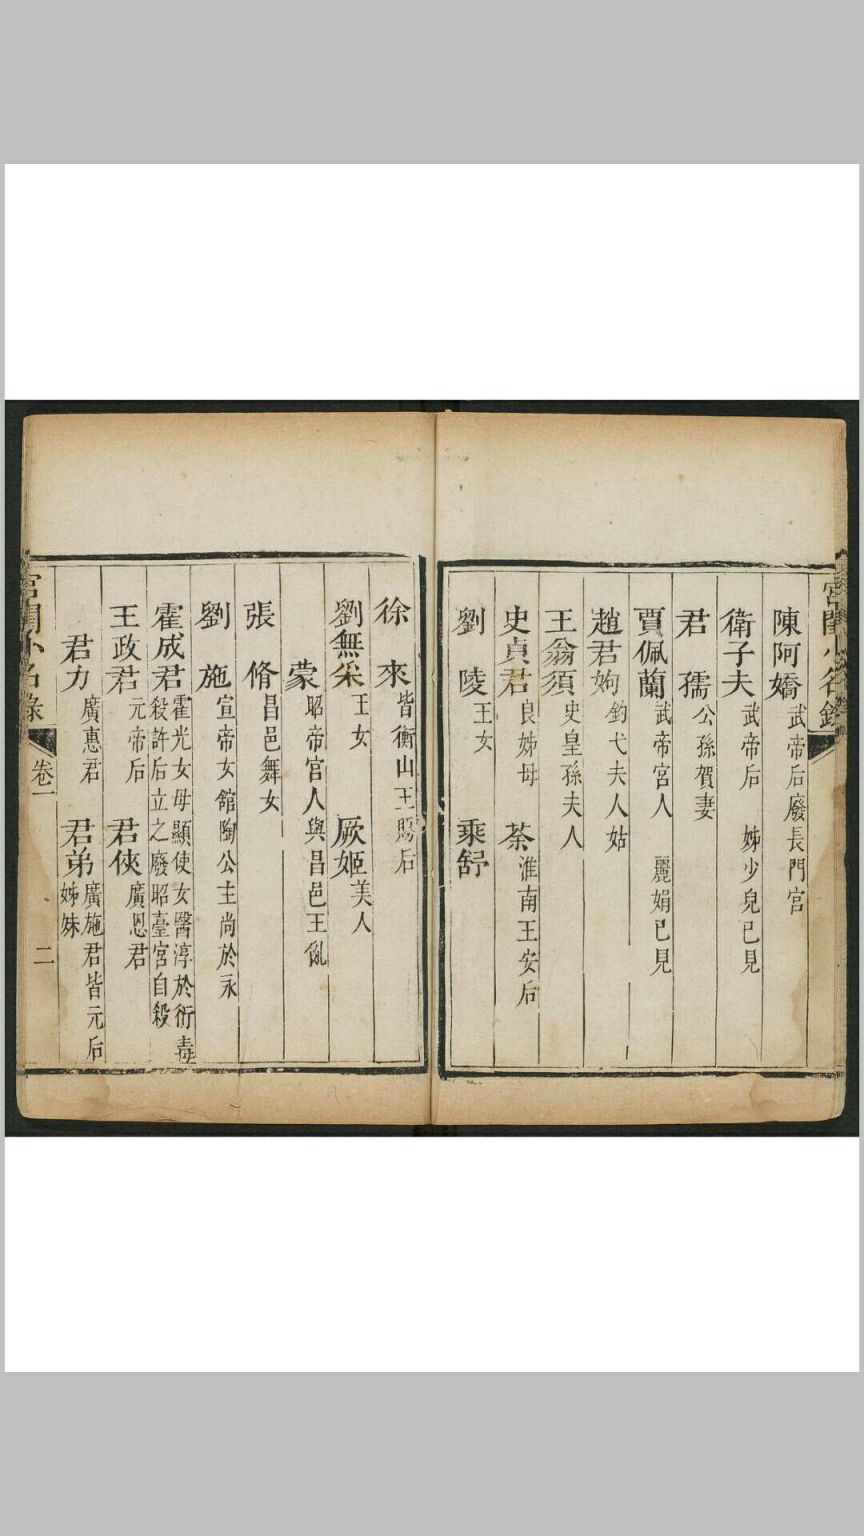 宮閨小名錄
陳阿嬌 武帝后廢長門宮
衛子夫 武帝后 姊少兒已見
君孺 公孫賀妻
賈佩蘭 武帝宮人 麗娟已見
趙君姁 鈎弋夫人姑
王翁須 史皇孫夫人
史貞君 良娣母 荼 淮南王安后
劉陵 王女 乘舒
徐來 皆衡山王賜后
劉無采 王女 厥姬 美人
蒙 昭帝宮人與昌邑王亂
張脩 昌邑舞女
劉施 宣帝女館陶公主尚於永
霍成君 霍光女母顯使女醫淳於衍毒
殺許后立之廢昭臺宮自殺
王政君 元帝后 君俠 廣恩君
君力 廣惠君 君弟 廣施君皆元后
姊妹
宮閨小名錄 卷一 二